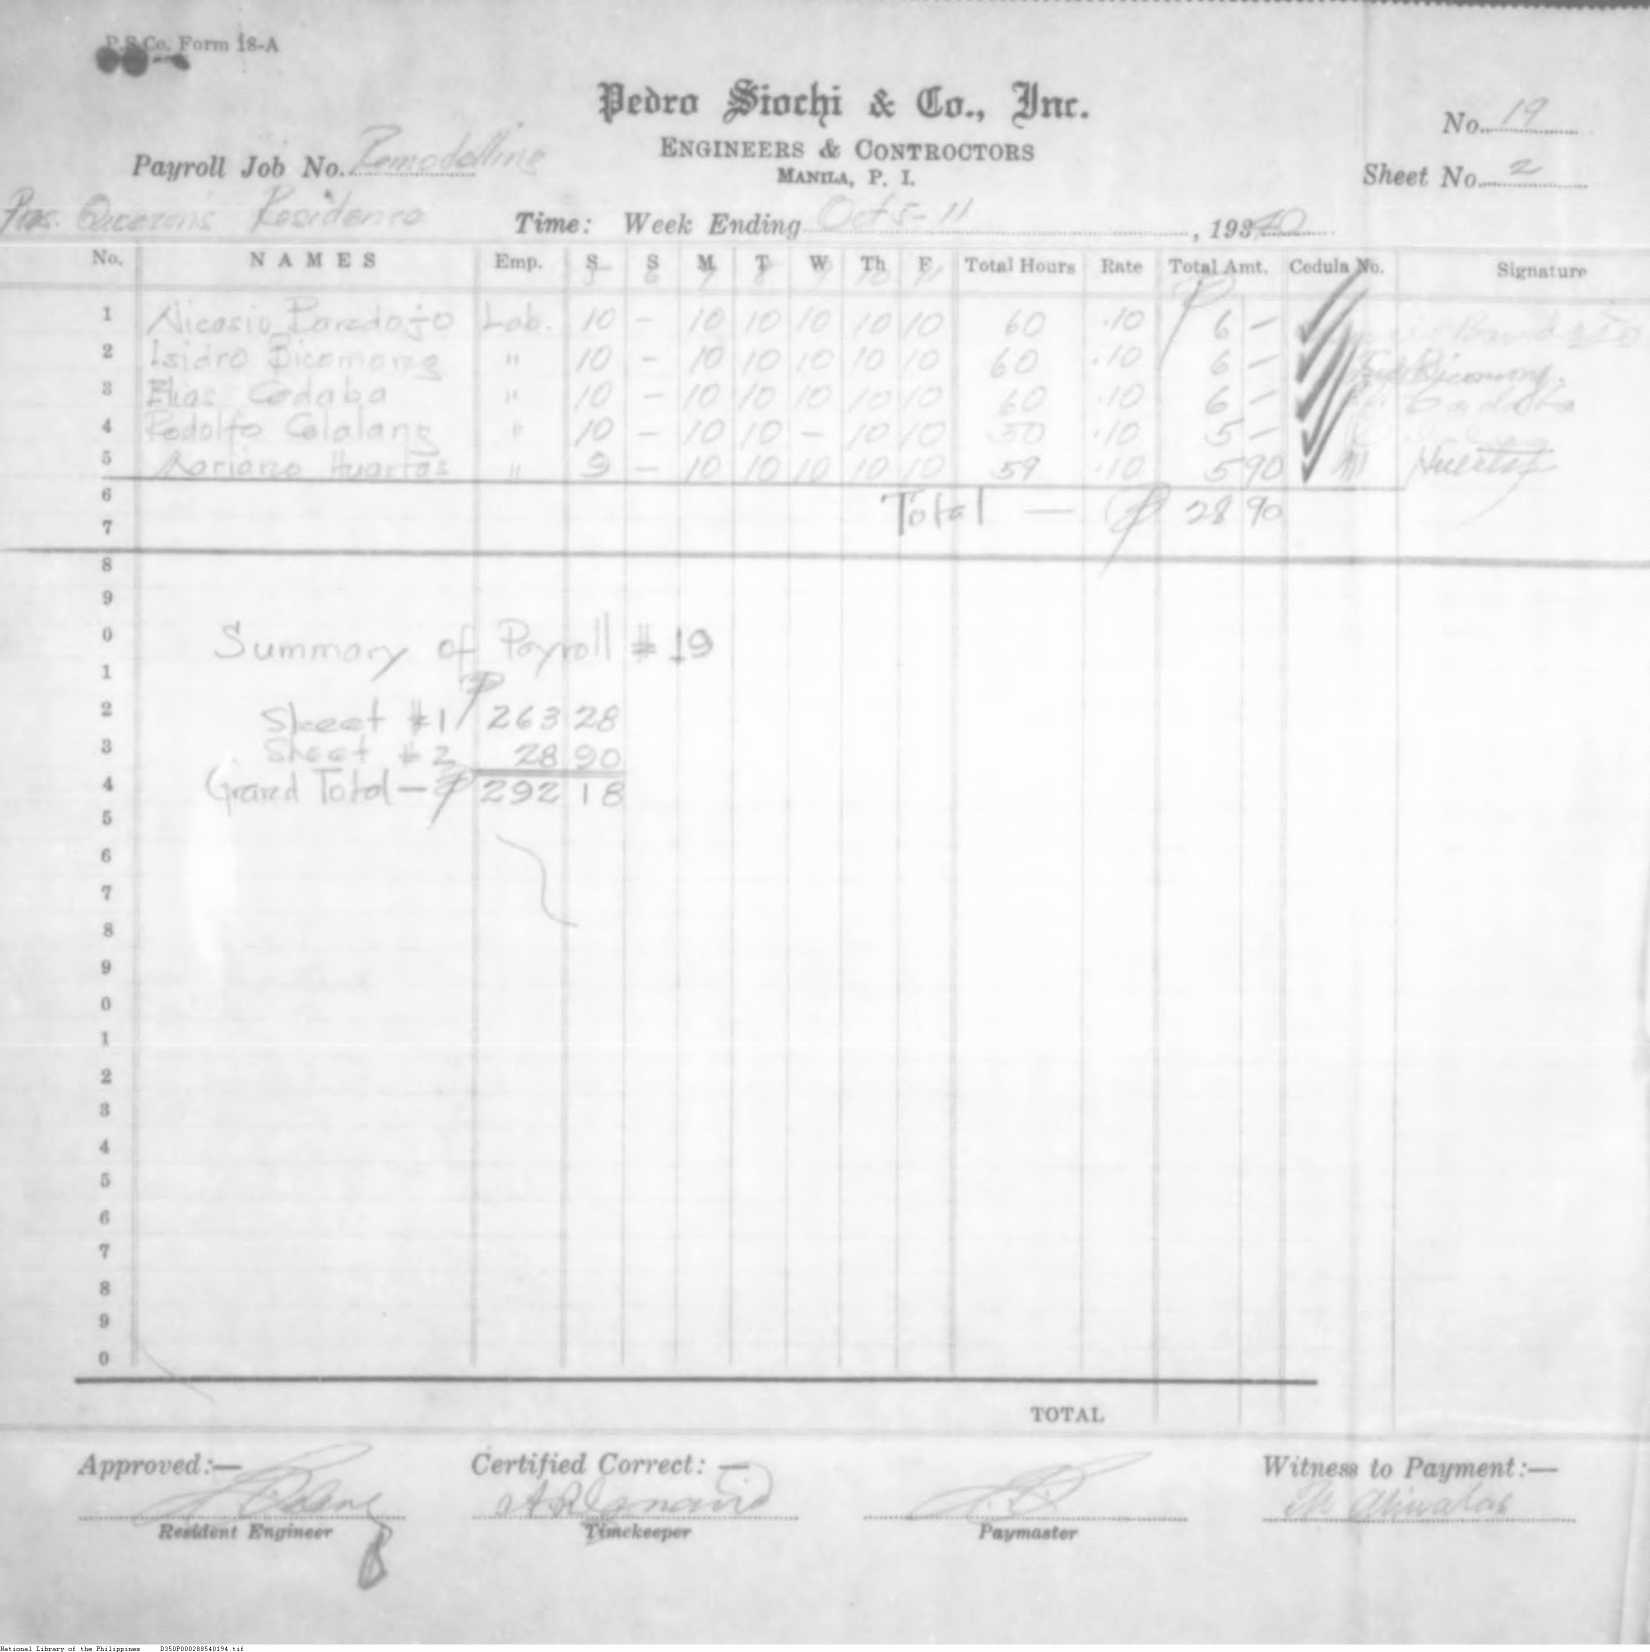 P.S.Co. Form 18-A
Pedro Siochi & Co., Inc.
ENGINEERS & CONTROCTORS
MANILA, P. I.
No. 19
Sheet No. 2
Payroll Job No. Remodelling
Pres. Quezon's Residence
Time: Week Ending Oct 5-11, 1940
No. NAMES Emp. S S M T W Th F Total Hours Rate Total Amt. Cedula No. Signature
5 6 7 8 9 10 11
1 Nicasio Lab. 10 - 10 10 10 10 10 60 .10 ₱ 6 -
2 Isidro Bicomong " 10 - 10 10 10 10 10 60 .10 6 - Bicomong
3 Elias Codaba " 10 - 10 10 10 10 10 60 .10 6 -
4 Rodolfo Calalang " 10 - 10 10 - 10 10 50 .10 5 -
5 Mariano Huertas " 9 - 10 10 10 10 10 59 .10 5 90 M Huertas
6 Total — ₱ 28 90
7
8
9
0 Summary of Payroll # 19
1
2 Sheet #1 ₱ 263 28
3 Sheet #2 28 90
4 Grand Total — ₱ 292 18
5
6
7
8
9
0
1
2
3
4
5
6
7
8
9
0
TOTAL
Approved:— Certified Correct: — Witness to Payment:—
Resident Engineer Timekeeper Paymaster
National Library of the Philippines D350P000288540194.tif